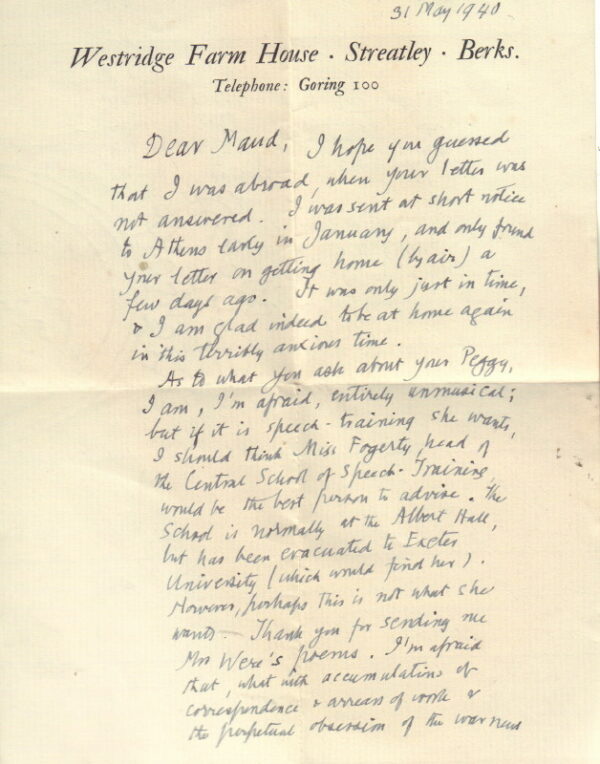 31 May 1940.
Westridge Farm House · Streatley · Berks.
Telephone: Goring 100
Dear Maud, I hope you guessed
that I was abroad, when your letter was
not answered. I was sent at short notice
to Athens early in January, and only found
your letter on getting home (by air) a
few days ago. It was only just in time,
& I am glad indeed to be at home again
in this terribly anxious time.
As to what you ask about your Peggy,
I am, I'm afraid, entirely unmusical;
but if it is speech-training she wants,
I should think Miss Fogerty head of
the Central School of Speech-Training,
would be the best person to advise. The
School is normally at the Albert Hall,
but has been evacuated to Exeter
University (which would find her).
However, perhaps this is not what she
wants. Thank you for sending me
Mrs Were's poems. I'm afraid
that, what with accumulation of
correspondence & arrears of work &
the perpetual obsession of the war news